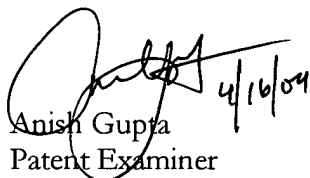 4/16/04
Anish Gupta
Patent Examiner